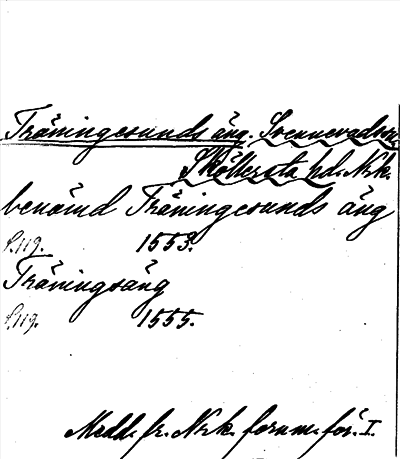 Träningesunds äng. Svennevadssn,
Sköllersta hd. Nrk.
benämd Träningesunds äng
s. 119. 1553.
Träningsäng
s. 119. 1555.
Medd. fr. Nrk. fornm. för. I.